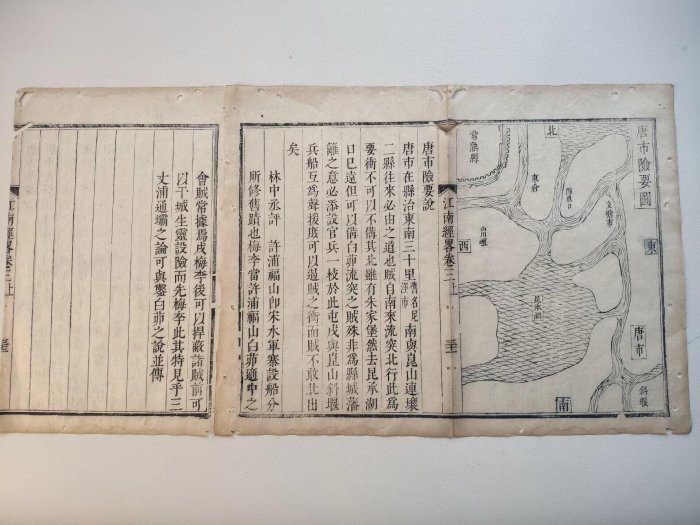 唐市險要圖
北
東
西
南
常熟縣
東倉
支塘市
山川壇
昆承湖
唐市
斜堰
唐市險要說
唐市在縣治東南三十里舊名尤涇市南與崑山連壤
二縣往來必由之道也賊自南來流突北行此爲
要衝不可以不備其北雖有朱家堡然去昆承湖
口已遠但可以備白茆流突之賊殊非爲縣城藩
籬之意必添設官兵一枝於此屯戍與崑山斜堰
兵船互爲聲援庶可以遏賊之衝而賊不敢北出
矣
江南經畧卷三上
林中丞評 許浦福山卽宋水軍寨設船分
所修舊蹟也梅李當許浦福山白茆適中之
會賊常據焉戍梅李後可以捍蔽諸賊前可
以干城生靈設險而先梅李此其特見乎三
丈浦通壩之論可與鑿白茆之說並傳
江南經畧卷三上